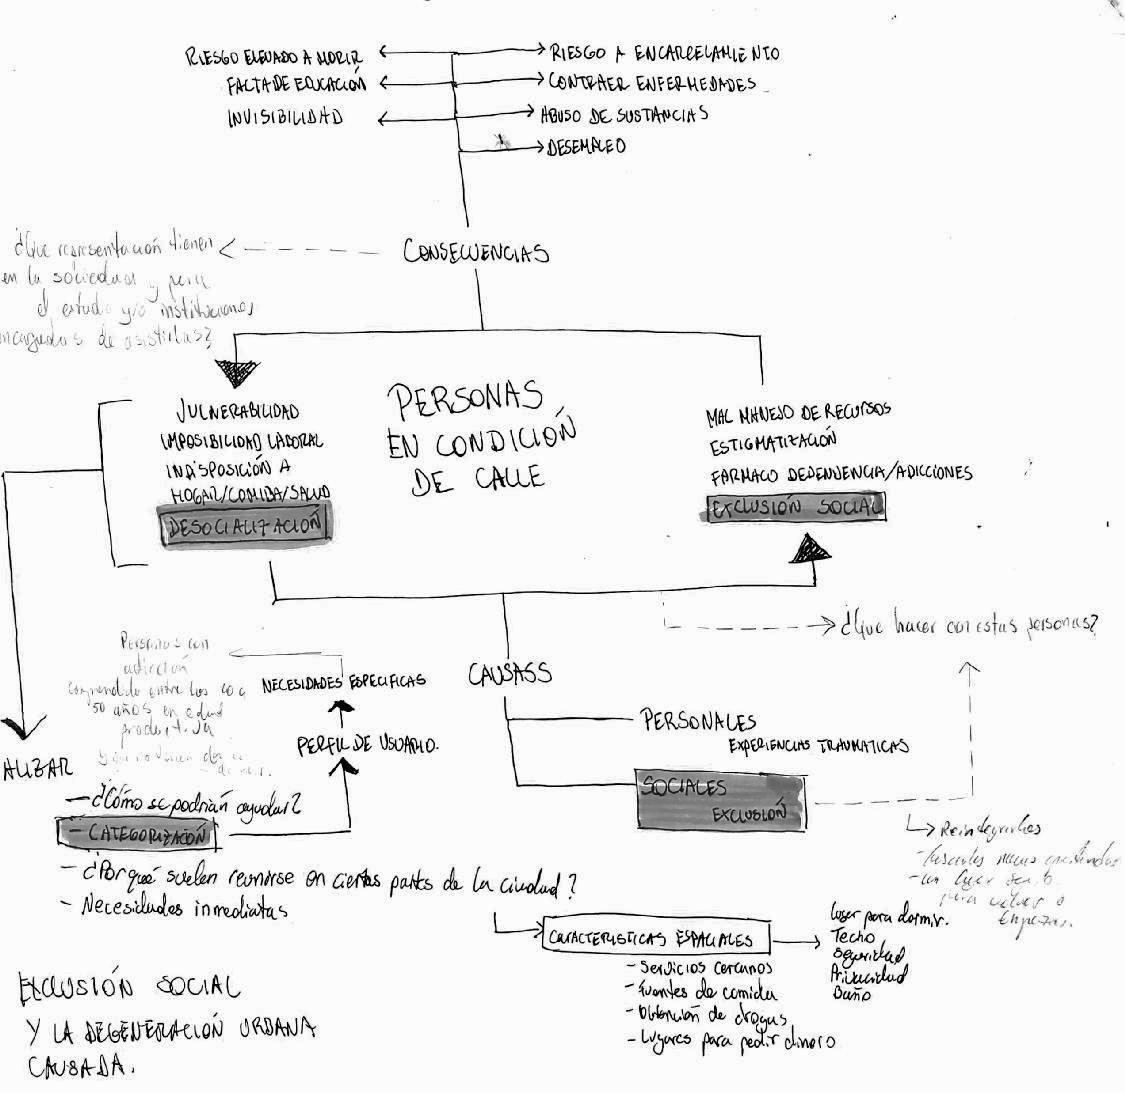 RIESGO ELEVADO A MORIR
FALTA DE EDUCACIÓN
INVISIBILIDAD
RIESGO A ENCARCELAMIENTO
CONTRAER ENFERMEDADES
ABUSO DE SUSTANCIAS
DESEMPLEO
CONSECUENCIAS
¿Que representación tienen
en la sociedad y para
el estado y/o instituciones
de asistirlas?
VULNERABILIDAD
IMPOSIBILIDAD LABORAL
INDISPOSICIÓN A
HOGAR/COMIDA/SALUD
DESOCIALIZACIÓN
PERSONAS
EN CONDICIÓN
DE CALLE
MAL MANEJO DE RECURSOS
ESTIGMATIZACIÓN
FARMACO DEPENDENCIA/ADICCIONES
EXCLUSIÓN SOCIAL
¿Que hacer con estas personas?
CAUSASS
PERSONALES
EXPERIENCIAS TRAUMATICAS
SOCIALES
EXCLUSIÓN
Reintegrarlos
- un lugar
para volver a
empezar.
Personas con
adicción
entre los
50 años en edad
NECESIDADES ESPECIFICAS
PERFIL DE USUARIO.
ALIZAR
- ¿Cómo se podrían ayudar?
- CATEGORIZACIÓN
- ¿Por qué suelen reunirse en ciertas partes de la ciudad?
- Necesidades inmediatas
CARACTERISTICAS ESPACIALES
- Servicios cercanos
- Fuentes de comida
- Obtención de drogas
- Lugares para pedir dinero
Lugar para dormir.
Techo
Seguridad
Privacidad
Baño
EXCLUSIÓN SOCIAL
Y LA DEGENERACIÓN URBANA
CAUSADA.